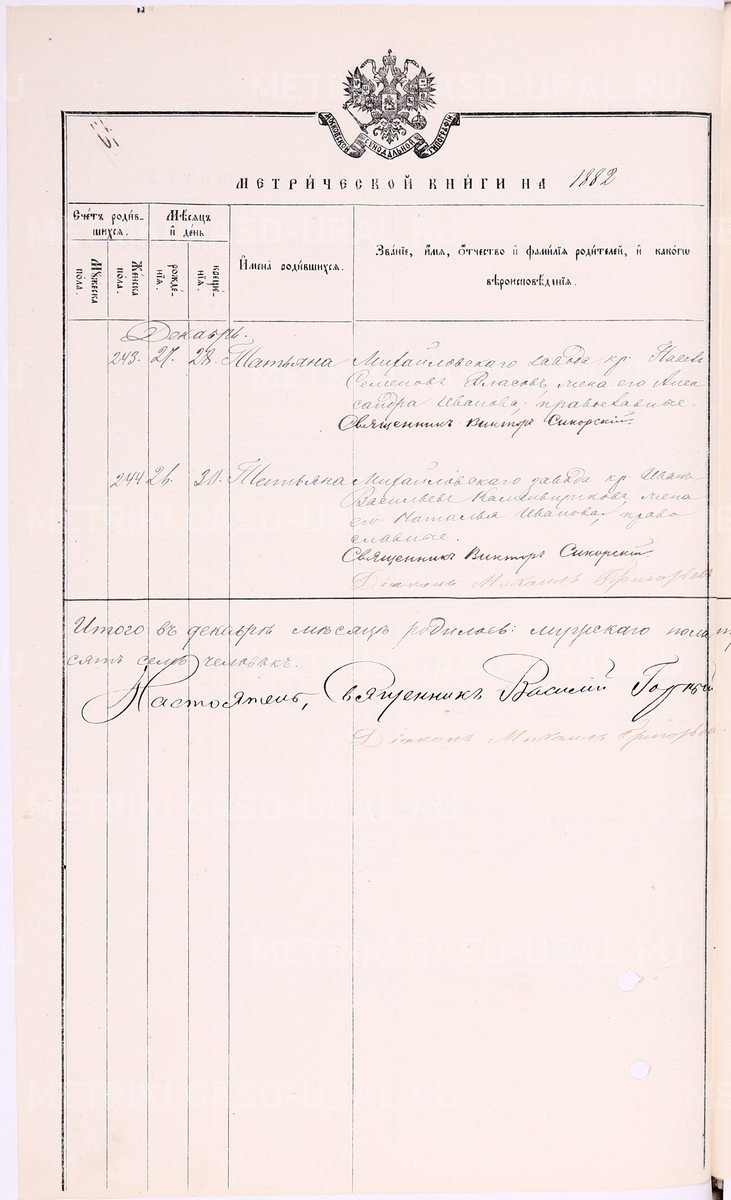 МОСКОВСКОЙ СѴНОДАЛЬНОЙ ТИПОГРАФІИ
МЕТРИ́ЧЕСКОЙ КНИ́ГИ НА 1882
Сче́тъ роди́в-
шихсѧ.
Мѣ́сѧцъ
и҆ де́нь
И҆мена̀ роди́вшихсѧ.
Зва́нїе, и҆́мѧ, ѻ҆́тчество и҆ фами́лїѧ роди́телей, и҆ како́гѡ
вѣроисповѣ́данїѧ.
Мꙋ́жеска
по́ла.
Же́нска
по́ла.
рожде́-
нїѧ.
креще́-
нїѧ.
Декабрь.
243. 27. 28. Татьяна Михайловскаго завода кр.
Семеновъ Власовъ, жена его Алек
сандра Иванова; православные.
Священникъ Викторъ Сикорскій.
244 Татьяна Михайловскаго завода кр. Иванъ
Васильевъ жена
его Наталья Иванова, право
славные.
Священникъ Викторъ Сикорскій.
Діаконъ Михаилъ Григорьевъ
Итого въ декабрѣ мѣсяцѣ родилось: мужскаго пола
сятъ семь человѣкъ.
Настоятель, Священникъ Василій
Діаконъ Михаилъ Григорьевъ
METRIKI.GASO-URAL.RU